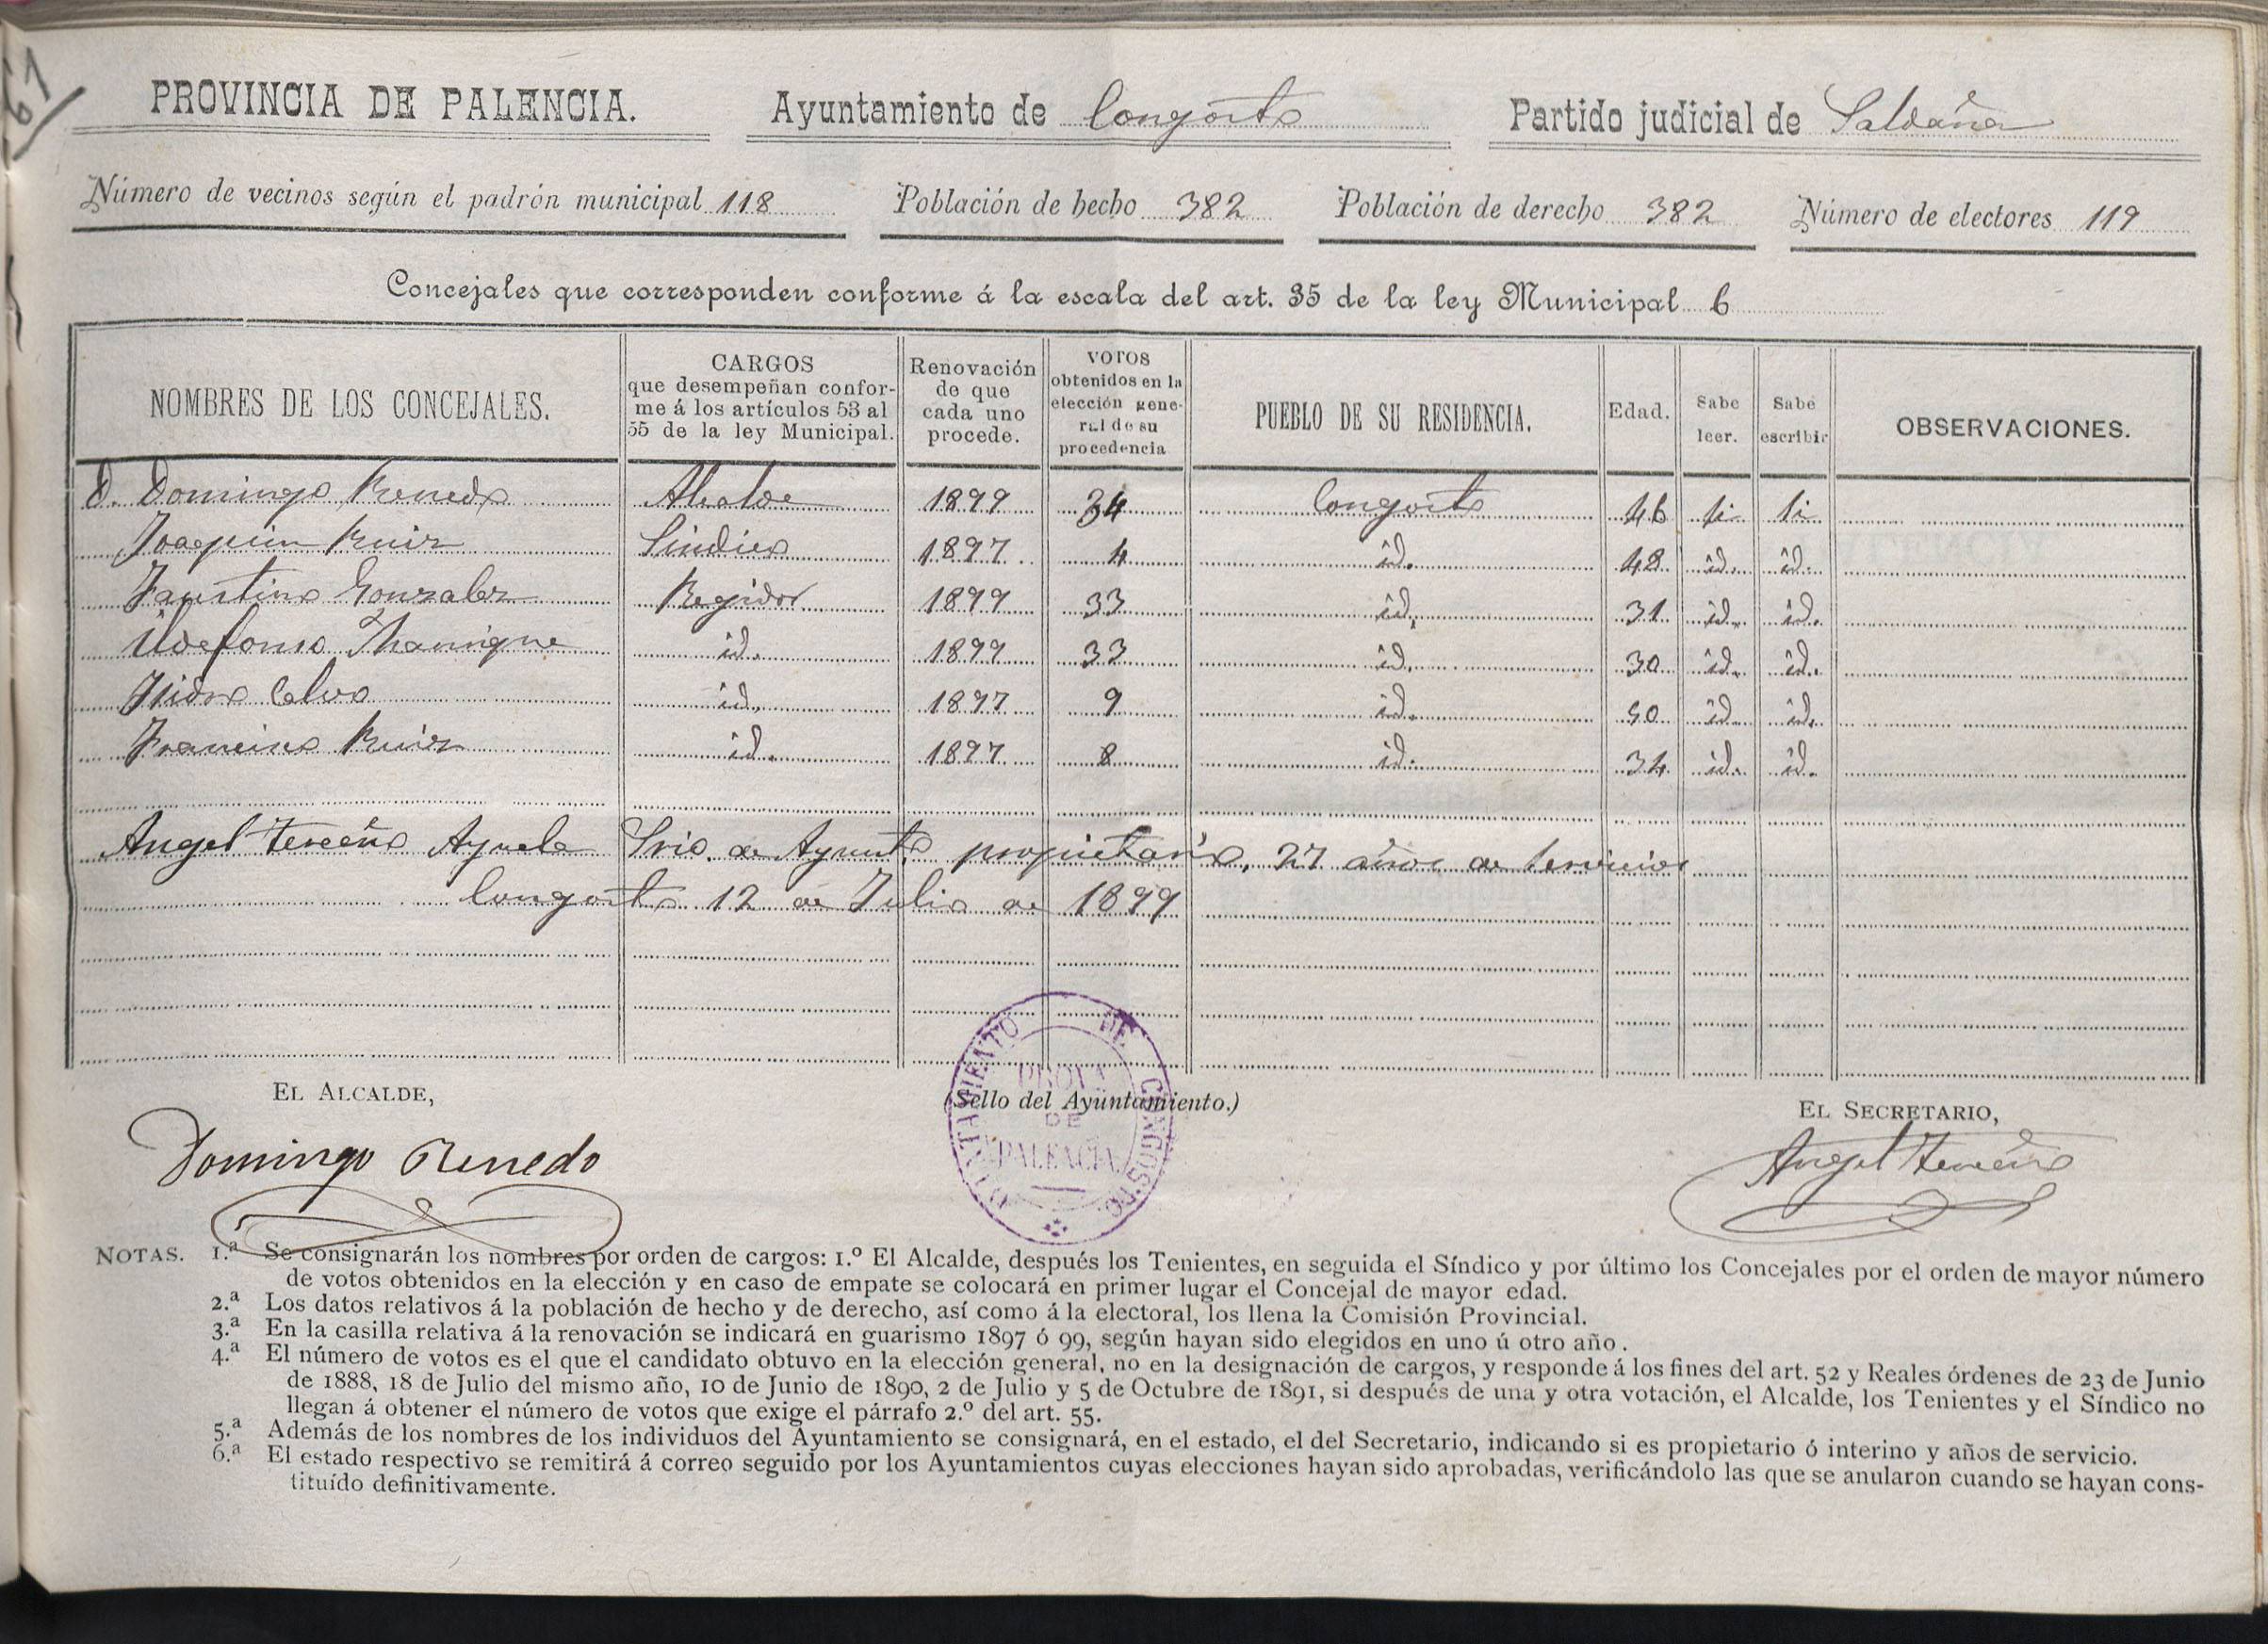 61
PROVINCIA DE PALENCIA. Ayuntamiento de Congosto Partido judicial de Saldaña
Número de vecinos según el padrón municipal 118 Población de hecho 382 Población de derecho 382 Número de electores 119
Concejales que corresponden conforme á la escala del art. 35 de la ley Municipal 6
NOMBRES DE LOS CONCEJALES. CARGOS que desempeñan conforme á los artículos 53 al 55 de la ley Municipal. Renovación de que cada uno procede. VOTOS obtenidos en la elección general de su procedencia PUEBLO DE SU RESIDENCIA. Edad. Sabe leer. Sabe escribir OBSERVACIONES.
D. Domingo Renedo Alcalde 1899 34 Congosto 46 si si
Joaquin Ruiz Sindico 1897 4 id. 48 id. id.
Faustino Gonzalez Regidor 1899 33 id. 31 id. id.
Ildefonso id. 1899 33 id. 30 id. id.
Isidro Calvo id. 1897 9 id. 50 id. id.
Francisco Ruiz id. 1897 8 id. 34 id. id.
Angel Tereño Ayuela Srio. de Ayunto propietario, 27 años de servicios
Congosto 12 de Julio de 1899
EL ALCALDE, (Sello del Ayuntamiento.) EL SECRETARIO,
AYUNTAMIENTO DE CONGOSTO
PROVA
DE
PALENCIA
Domingo Renedo Angel Tereño
NOTAS. 1.ª Se consignarán los nombres por orden de cargos: 1.º El Alcalde, después los Tenientes, en seguida el Síndico y por último los Concejales por el orden de mayor número
de votos obtenidos en la elección y en caso de empate se colocará en primer lugar el Concejal de mayor edad.
2.ª Los datos relativos á la población de hecho y de derecho, así como á la electoral, los llena la Comisión Provincial.
3.ª En la casilla relativa á la renovación se indicará en guarismo 1897 ó 99, según hayan sido elegidos en uno ú otro año.
4.ª El número de votos es el que el candidato obtuvo en la elección general, no en la designación de cargos, y responde á los fines del art. 52 y Reales órdenes de 23 de Junio
de 1888, 18 de Julio del mismo año, 10 de Junio de 1890, 2 de Julio y 5 de Octubre de 1891, si después de una y otra votación, el Alcalde, los Tenientes y el Síndico no
llegan á obtener el número de votos que exige el párrafo 2.º del art. 55.
5.ª Además de los nombres de los individuos del Ayuntamiento se consignará, en el estado, el del Secretario, indicando si es propietario ó interino y años de servicio.
6.ª El estado respectivo se remitirá á correo seguido por los Ayuntamientos cuyas elecciones hayan sido aprobadas, verificándolo las que se anularon cuando se hayan cons-
tituído definitivamente.